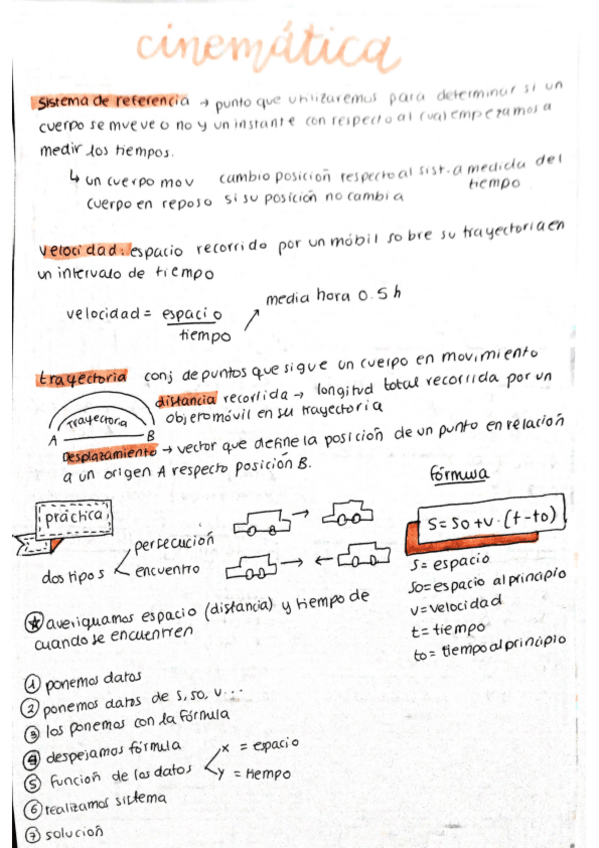 cinemática
Sistema de referencia → punto que utilizaremos para determinar si un
cuerpo se mueve o no y un instante con respecto al cual empezamos a
medir los tiempos.
↳ un cuerpo mov cambio posición respecto al sist. a medida del
tiempo
cuerpo en reposo si su posición no cambia
Velocidad: espacio recorrido por un móbil sobre su trayectoria en
un intervalo de tiempo
velocidad = espacio
tiempo
media hora 0.5 h
trayectoria conj de puntos que sigue un cuerpo en movimiento
distancia recorrida → longitud total recorrida por un
objeto móvil en su trayectoria
trayectoria
A B
Desplazamiento → vector que define la posición de un punto en relación
a un origen A respecto posición B.
fórmula
práctica
S = So + v · (t - to)
dos tipos
persecución
encuentro
S = espacio
So = espacio al principio
v = velocidad
t = tiempo
to = tiempo al principio
averiguamos espacio (distancia) y tiempo de
cuando se encuentren
① ponemos datos
② ponemos datos de s, so, v...
③ los ponemos con la fórmula
④ despejamos fórmula
⑤ función de los datos
x = espacio
y = tiempo
⑥ realizamos sistema
⑦ solución